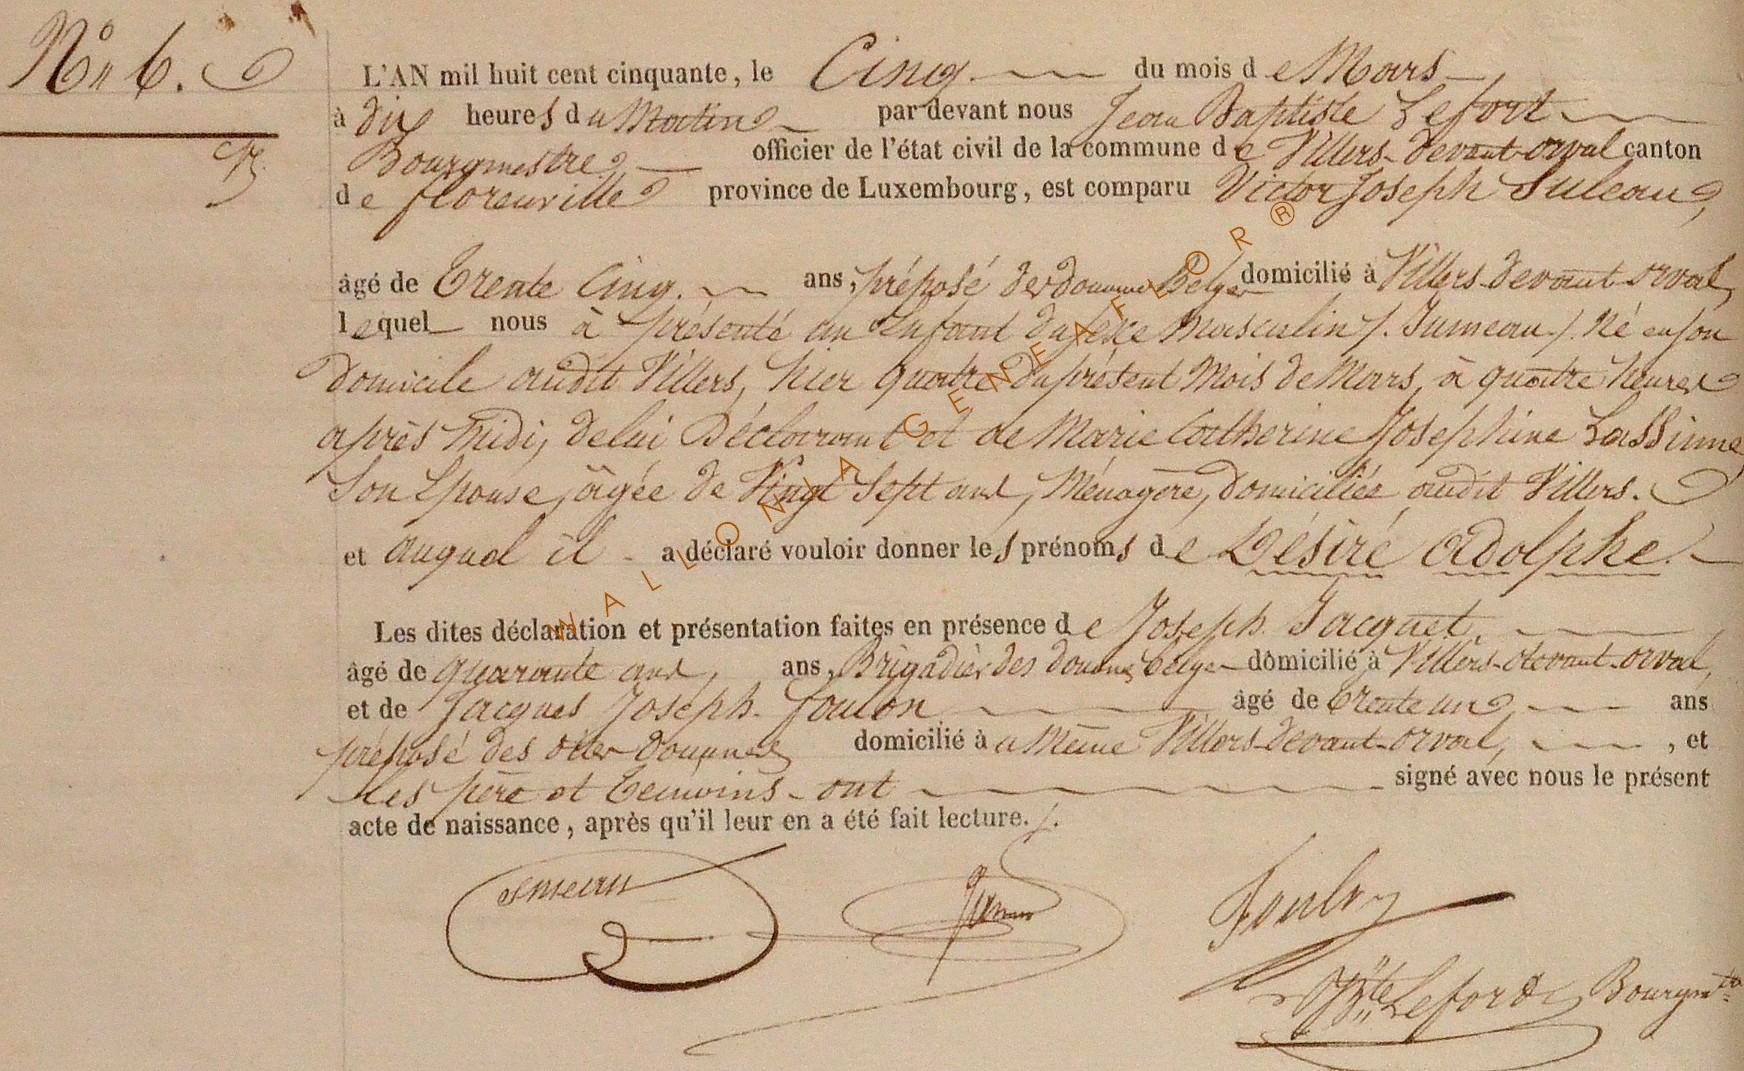 N° 6.
L'AN mil huit cent cinquante, le Cinq du mois de Mars,
à dix heures du Matin par devant nous Jean Baptiste Lefort
Bourgmestre, officier de l'état civil de la commune de Villers-devant-orval canton
de florenville province de Luxembourg, est comparu Victor Joseph Suleau,
âgé de Trente Cinq. ans, préposé des douanes Belges domicilié à Villers-devant-orval,
lequel nous à présenté un Enfant du sexe Masculin /. Jumeau ./. Né en son
domicile audit Villers, hier quatre du présent Mois de Mars, à quatre heures
après midi, de lui Déclarant et de Marie Catherine Josephine Lassinne,
Son Epouse, âgée de Vingt Sept ans, Ménagère, domiciliée audit Villers.
et auquel il a déclaré vouloir donner les prénoms de Désiré adolphe.
Les dites déclaration et présentation faites en présence de Joseph Jacquet,
âgé de quarante ans, ans, Brigadier des douanes belges domicilié à Villers-devant-orval,
et de Jacques Joseph foulon âgé de trente un ans
préposé des douanes domicilié au Même Villers-devant-orval, , et
les père et temoins ont signé avec nous le présent
acte de naissance, après qu'il leur en a été fait lecture. /.
JBte Lefort Bourgmtre
WALLONIA GENEAFLOR®